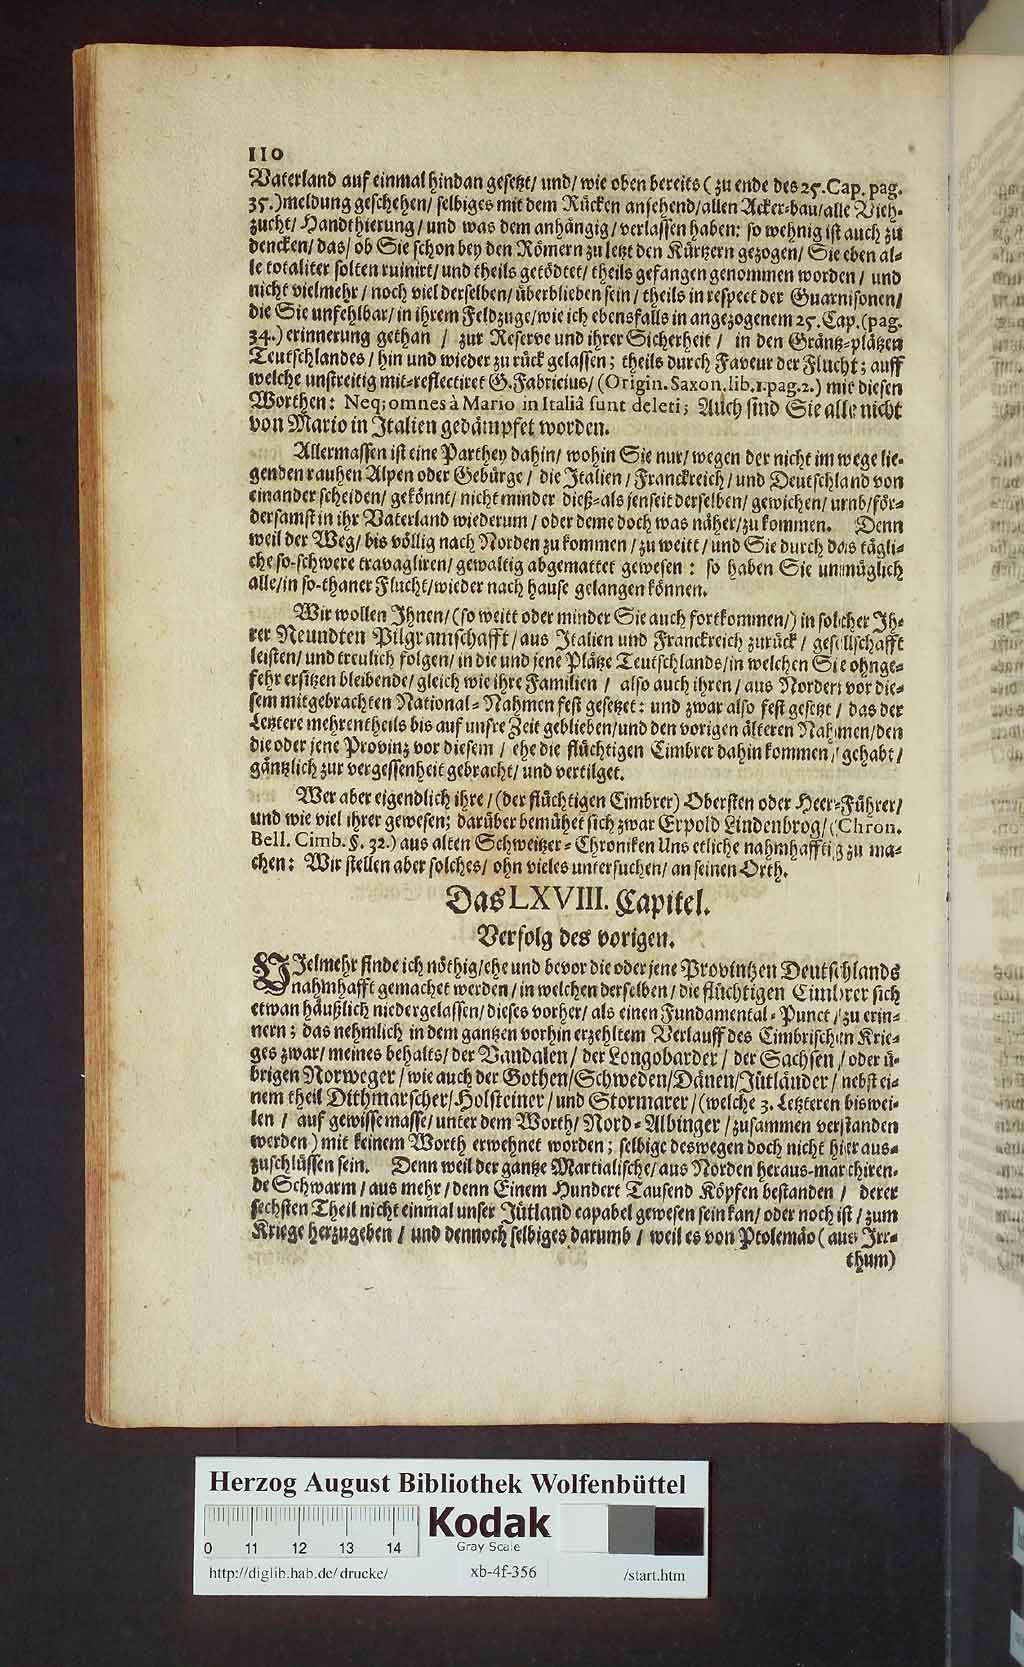 110
Vaterland auf einmal hindan gesetzt/ und/ wie oben bereits (zu ende des 25. Cap. pag.
35.) meldung geschehen/ selbiges mit dem Rücken ansehend/ allen Acker-bau/ alle Vieh-
zucht/ Handthierung/ und was dem anhängig/ verlassen haben: so wehnig ist auch zu
dencken/ das/ ob Sie schon bey den Römern zu letzt den Kürtzern gezogen/ Sie eben al-
le totaliter solten ruinirt/ und theils getödtet/ theils gefangen genommen worden/ und
nicht vielmehr/ noch viel derselben/ überblieben sein/ theils in respect der Guarnisonen/
die Sie unfehlbar/ in ihrem Feldzuge/ wie ich ebensfalls in angezogenem 25. Cap. (pag.
34.) erinnerung gethan / zur Reserve und ihrer Sicherheit / in den Gräntz-plätzen
Teutschlandes/ hin und wieder zu rück gelassen; theils durch Faveur der Flucht; auff
welche unstreitig mit-reflectiret G. Fabricius/ (Origin. Saxon. lib. 1. pag. 2.) mit diesen
Worthen: Neq; omnes à Mario in Italiâ sunt deleti; Auch sind Sie alle nicht
von Mario in Italien gedämpfet worden.
Allermassen ist eine Parthey dahin/ wohin Sie nur/ wegen der nicht im wege lie-
genden rauhen Alpen oder Gebürge/ die Italien/ Franckreich/ und Deutschland von
einander scheiden/ gekönnt/ nicht minder dieß-als jenseit derselben/ gewichen/ umb/ för-
dersamst in ihr Vaterland wiederum/ oder deme doch was näher/ zu kommen. Denn
weil der Weg/ bis völlig nach Norden zu kommen/ zu weitt/ und Sie durch das tägli-
che so-schwere travagliren/ gewaltig abgemattet gewesen: so haben Sie unmüglich
alle/ in so-thaner Flucht/ wieder nach hause gelangen können.
Wir wollen Ihnen/ (so weitt oder minder Sie auch fortkommen/) in solcher Ih-
rer Neundten Pilgramschafft/ aus Italien und Franckreich zurück/ gesellschafft
leisten/ und treulich folgen/ in die und jene Plätze Teutschlands/ in welchen Sie ohnge-
fehr ersitzen bleibende/ gleich wie ihre Familien/ also auch ihren/ aus Norden vor die-
sem mitgebrachten National-Nahmen fest gesetzet: und zwar also fest gesetzt/ das der
Letztere mehrentheils bis auf unsre Zeit geblieben/ und den vorigen älteren Nahmen/ den
die oder jene Provinz vor diesem/ ehe die flüchtigen Cimbrer dahin kommen/ gehabt/
gäntzlich zur vergessenheit gebracht/ und vertilget.
Wer aber eigendlich ihre/ (der flüchtigen Cimbrer) Obersten oder Heer-Führer/
und wie viel ihrer gewesen; darüber bemühet sich zwar Erpold Lindenbrog/ (Chron.
Bell. Cimb. §. 32.) aus alten Schweitzer-Chroniken Uns etliche nahmhafftig zu ma-
chen: Wir stellen aber solches/ ohn vieles untersuchen/ an seinen Orth.
Das LXVIII. Capitel.
Verfolg des vorigen.
VIelmehr finde ich nöthig/ ehe und bevor die oder jene Provintzen Deutschlands
nahmhafft gemachet werden/ in welchen derselben/ die flüchtigen Cimbrer sich
etwan häußlich niedergelassen/ dieses vorher/ als einen Fundamental-Punct/ zu erin-
nern; das nehmlich in dem gantzen vorhin erzehltem Verlauff des Cimbrischen Krie-
ges zwar/ meines behalts/ der Vandalen/ der Longobarder/ der Sachsen/ oder ü-
brigen Norweger/ wie auch der Gothen/ Schweden/ Dänen/ Jütländer/ nebst ei-
nem theil Dithmarscher/ Holsteiner/ und Stormarer/ (welche 3. Letzteren biswei-
len / auf gewisse masse/ unter dem Worth/ Nord-Albinger/ zusammen verstanden
werden) mit keinem Worth erwehnet worden; selbige deswegen doch nicht hier aus-
zuschlüssen sein. Denn weil der gantze Martialische/ aus Norden heraus-marchiren-
de Schwarm/ aus mehr/ denn Einem Hundert Tausend Köpfen bestanden/ derer
sechsten Theil nicht einmal unser Jütland capabel gewesen sein kan/ oder noch ist/ zum
Kriege herzugeben/ und dennoch selbiges darumb/ weil es von Ptolemäo (aus Irr-
thum)
Herzog August Bibliothek Wolfenbüttel
Kodak
Gray Scale
0 11 12 13 14
http://diglib.hab.de/drucke/ xb-4f-356 /start.htm